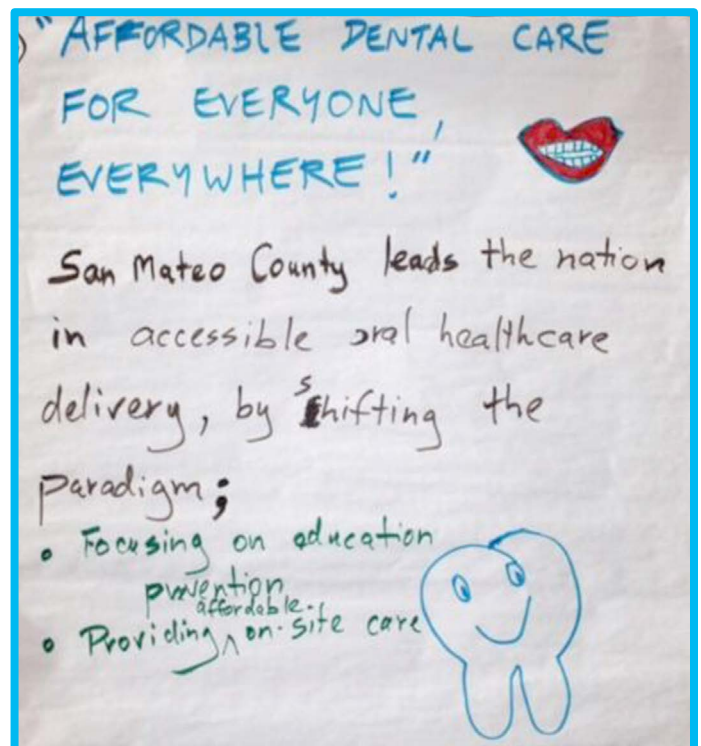 "AFFORDABLE DENTAL CARE
FOR EVERYONE,
EVERYWHERE!"
San Mateo County leads the nation
in accessible oral healthcare
delivery, by shifting the
paradigm;
• Focusing on education
prevention
affordable
• Providing ^ on-site care